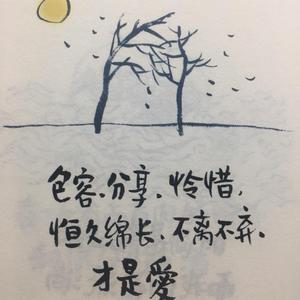 包容、分享、怜惜，
恒久绵长、不离不弃、
才是愛